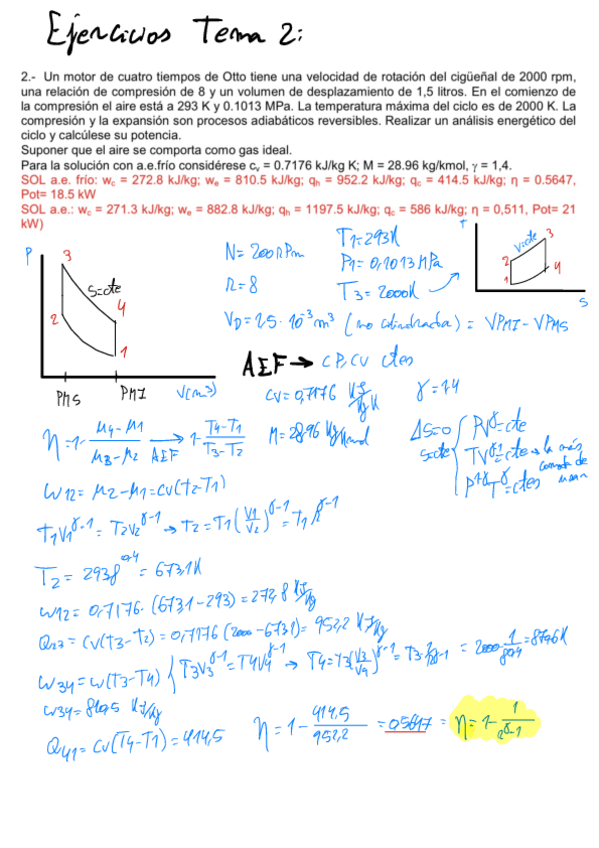 Ejercicios Tema 2:
2.- Un motor de cuatro tiempos de Otto tiene una velocidad de rotación del cigüeñal de 2000 rpm,
una relación de compresión de 8 y un volumen de desplazamiento de 1,5 litros. En el comienzo de
la compresión el aire está a 293 K y 0.1013 MPa. La temperatura máxima del ciclo es de 2000 K. La
compresión y la expansión son procesos adiabáticos reversibles. Realizar un análisis energético del
ciclo y calcúlese su potencia.
Suponer que el aire se comporta como gas ideal.
Para la solución con a.e.frío considérese cᵥ = 0.7176 kJ/kg K; M = 28.96 kg/kmol, γ = 1,4.
SOL a.e. frío: w_c = 272.8 kJ/kg; w_e = 810.5 kJ/kg; q_h = 952.2 kJ/kg; q_c = 414.5 kJ/kg; η = 0.5647,
Pot= 18.5 kW
SOL a.e.: w_c = 271.3 kJ/kg; w_e = 882.8 kJ/kg; q_h = 1197.5 kJ/kg; q_c = 586 kJ/kg; η = 0,511, Pot= 21
kW)
P
3
S=cte
4
2
1
PMS PMI V(m3)
N=2000RPm
R=8
T1=293K
P1=0,1013MPa
T3=2000K
T
V=cte
3
2
4
1
S
VD=1.5·10⁻³m³ (no cilindrada) = VPMI-VPMS
AEF → CP,CV ctes
CV=0,7176 KJ/KgK γ=1.4
M=28.96 Kg/Kmol
η=1-(μ4-μ1)/(μ3-μ2) →AEF 1-(T4-T1)/(T3-T2)
ΔS=0
S=cte
PVᵞ=cte
TVᵞ⁻¹=cte → la más
P¹⁻ᵞTᵞ=ctes
W12=μ2-μ1=cv(T2-T1)
T1V1ᵞ⁻¹=T2V2ᵞ⁻¹→T2=T1(V1/V2)ᵞ⁻¹=T1 Rᵞ⁻¹
T2=293·8⁰·⁴=673,1K
W12=0,7176·(673.1-293)=272,8 KJ/Kg
Q23=CV(T3-T2)=0,7176(2000-673.1)=952,2 KJ/Kg
W34=cv(T3-T4) { T3V3ᵞ⁻¹=T4V4ᵞ⁻¹→T4=T3(V3/V4)ᵞ⁻¹=T3·1/Rᵞ⁻¹=2000·1/8⁰·⁴=870,6K
W34=810,5 KJ/Kg
Q41=CV(T4-T1)=414,5
η=1-414,5/952,2=0,5647=η=1-1/rᵞ⁻¹